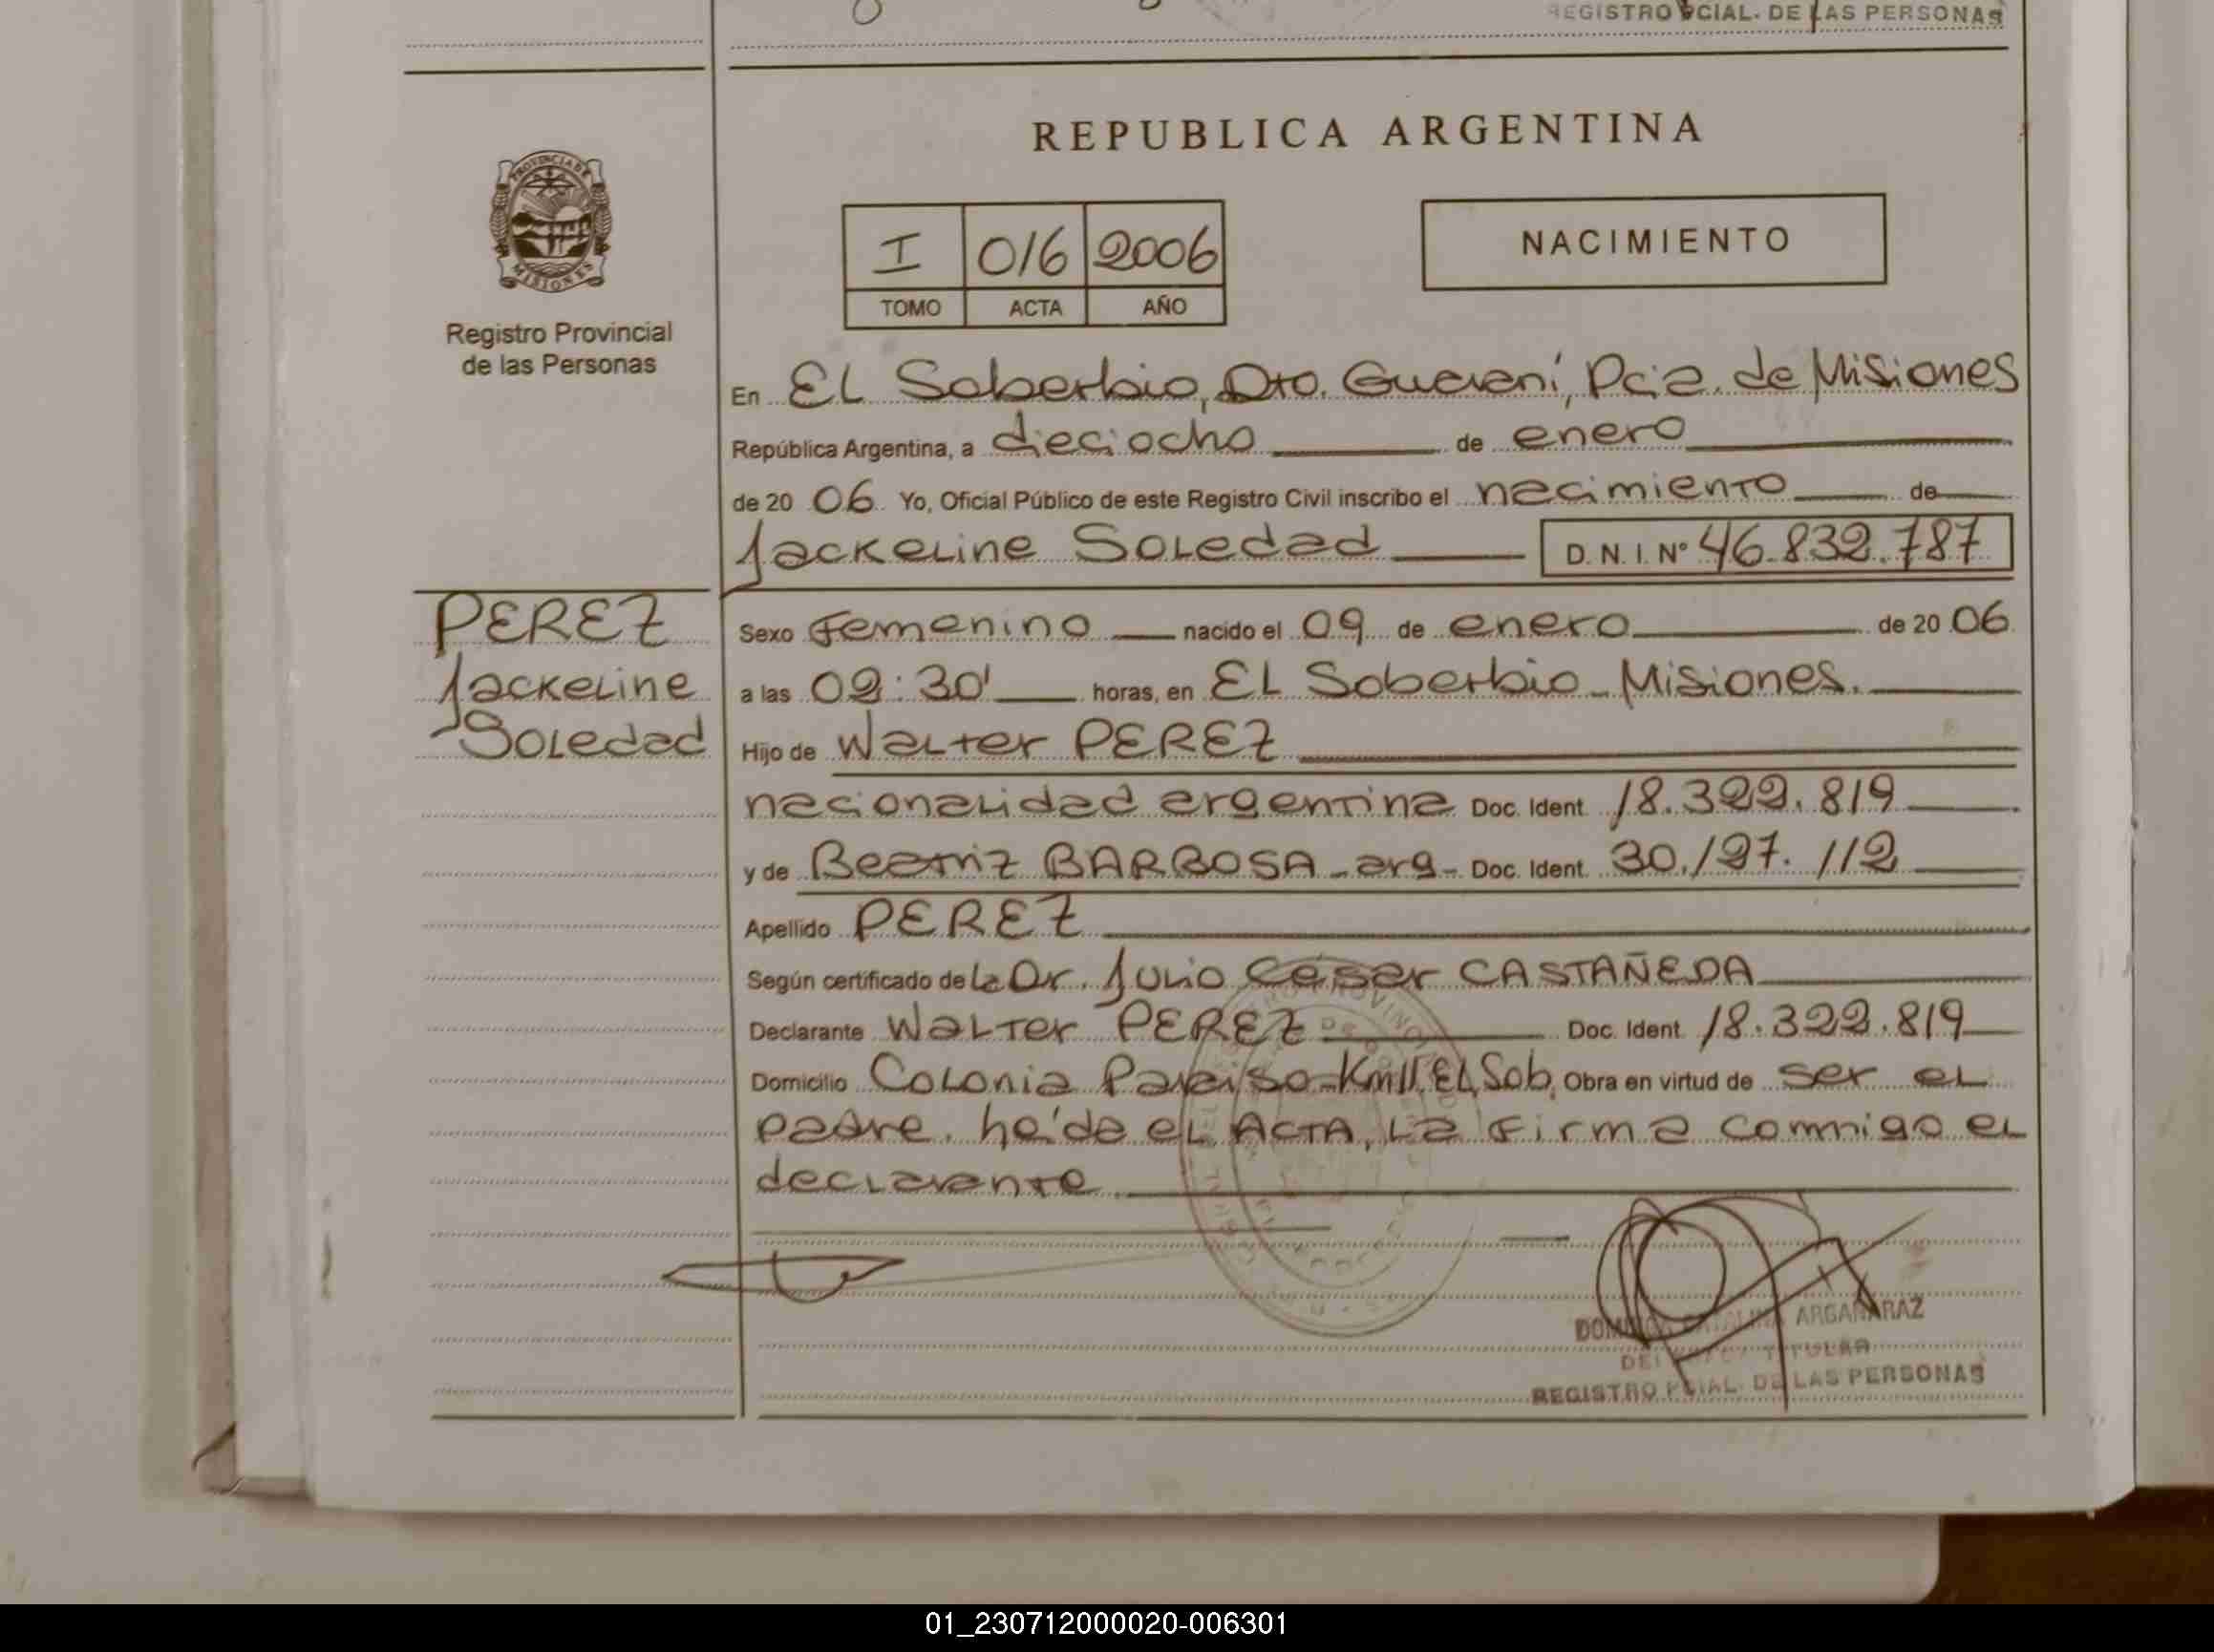 REGISTRO PCIAL. DE LAS PERSONAS
REPUBLICA ARGENTINA
PROVINCIA DE
MISIONES
Registro Provincial
de las Personas
I 016 2006
TOMO ACTA AÑO
NACIMIENTO
En EL Soberbio, Dto. Guarani, Pcia. de Misiones
República Argentina, a dieciocho de enero
de 20 06 Yo, Oficial Público de este Registro Civil inscribo el nacimiento de
Jackeline Soledad D. N. I. Nº 46.832.787
PEREZ
Jackeline
Soledad
Sexo Femenino nacido el 09 de enero de 20 06
a las 02:30' horas, en EL Soberbio - Misiones.
Hijo de Walter PEREZ
nacionalidad argentina Doc. Ident. 18.322.819
y de Beatriz BARBOSA - arg - Doc. Ident. 30.127.112
Apellido PEREZ
Según certificado de la Dr. Julio César CASTAÑEDA
Declarante Walter PEREZ Doc. Ident. 18.322.819
Domicilio Colonia Paraiso - Km 11 EL Sob, Obra en virtud de ser el
padre. heída el ACTA, La Firma conmigo el
declarante
ARGAÑARAZ
TITULAR
REGISTRO PCIAL. DE LAS PERSONAS
01_230712000020-006301